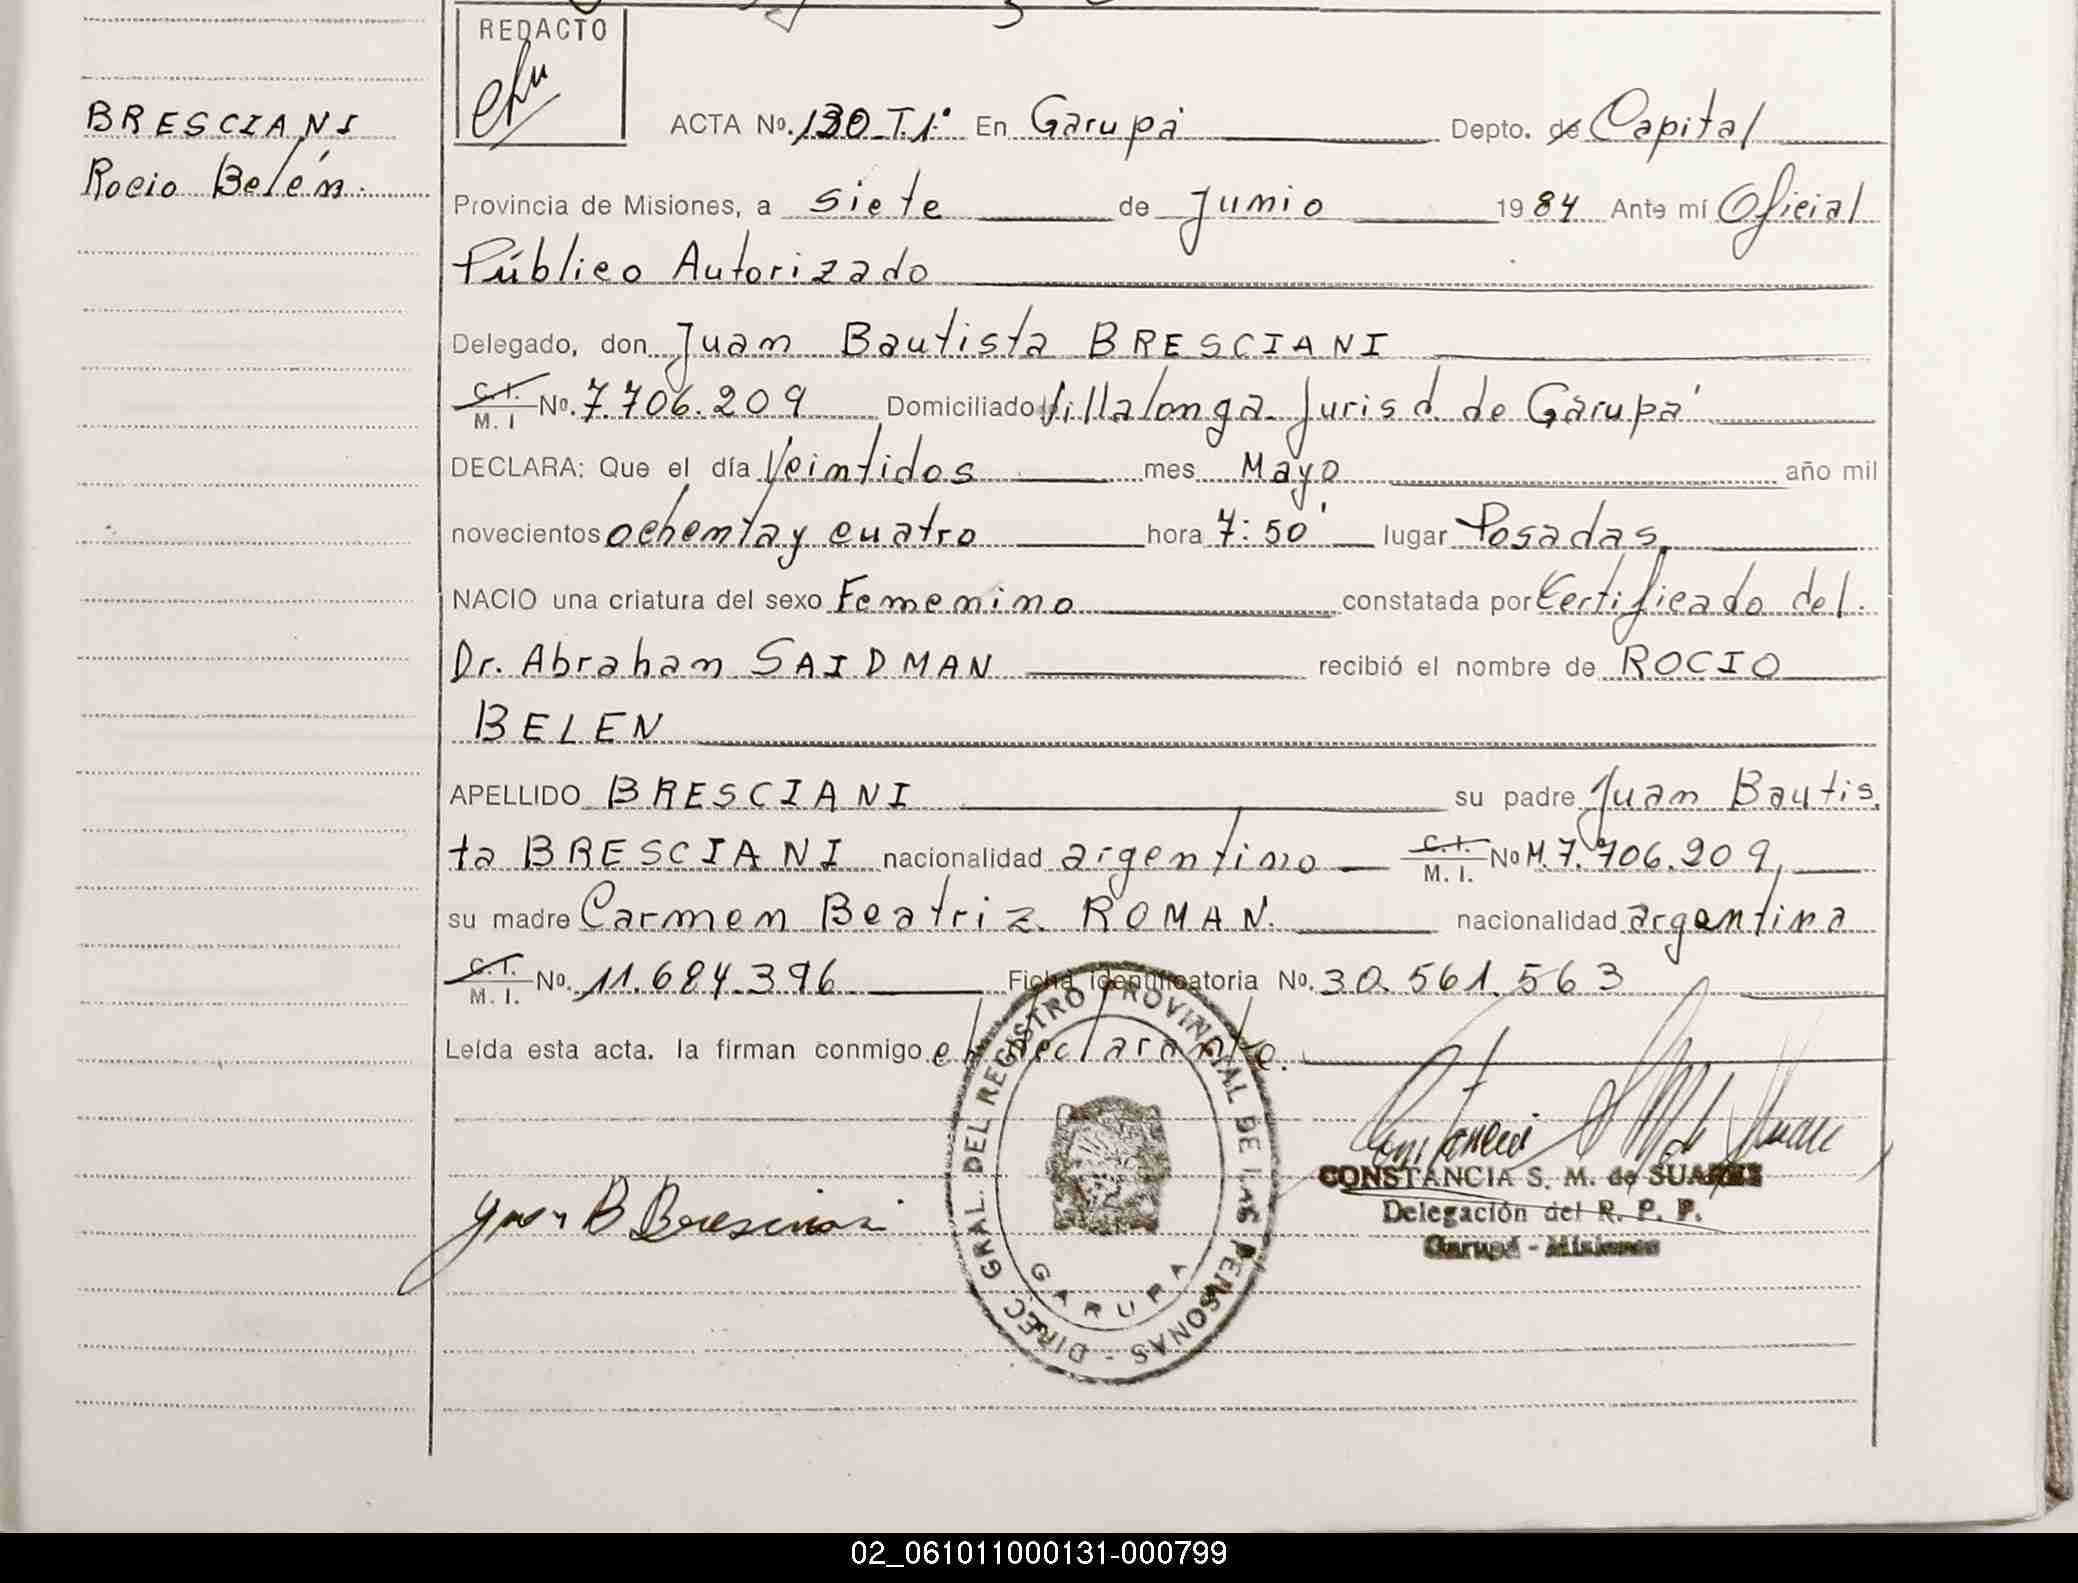 REDACTO
BRESCIANI
Rocio Belén.
ACTA Nº. 130 T.1º En Garupá Depto. de Capital
Provincia de Misiones, a siete de Junio 1984 Ante mí Oficial
Público Autorizado
Delegado, don Juan Bautista BRESCIANI
C.I. M. I Nº. 7.706.209 Domiciliado Villalonga Jurisd. de Garupá
DECLARA: Que el día Veintidos mes Mayo año mil
novecientos ochenta y cuatro hora 7:50' lugar Posadas,
NACIO una criatura del sexo Femenino constatada por Certificado del.
Dr. Abraham SAIDMAN recibió el nombre de ROCIO
BELEN
APELLIDO BRESCIANI su padre Juan Bautis
ta BRESCIANI nacionalidad argentino C.I. M. I. Nº M. 7.706.209,
su madre Carmen Beatriz ROMAN. nacionalidad argentina
C.I. M. I. Nº. 11.684.396 Ficha identificatoria Nº. 30.561.563
Leída esta acta. la firman conmigo el declarante.
DIREC. GRAL. DEL REGISTRO PROVINCIAL DE LAS PERSONAS -
GARUPA
Juan B Bresciani
CONSTANCIA S. M. de SUAREZ
Delegación del R. P. P.
Garupá - Misiones
02_061011000131-000799